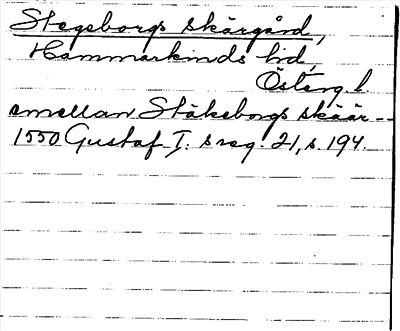 Stegeborgs skärgård,
Hammarkinds hd,
Österg. l.
emellan Stäkeborgs skäär--
1550 Gustaf I: s reg. 21, s. 194.